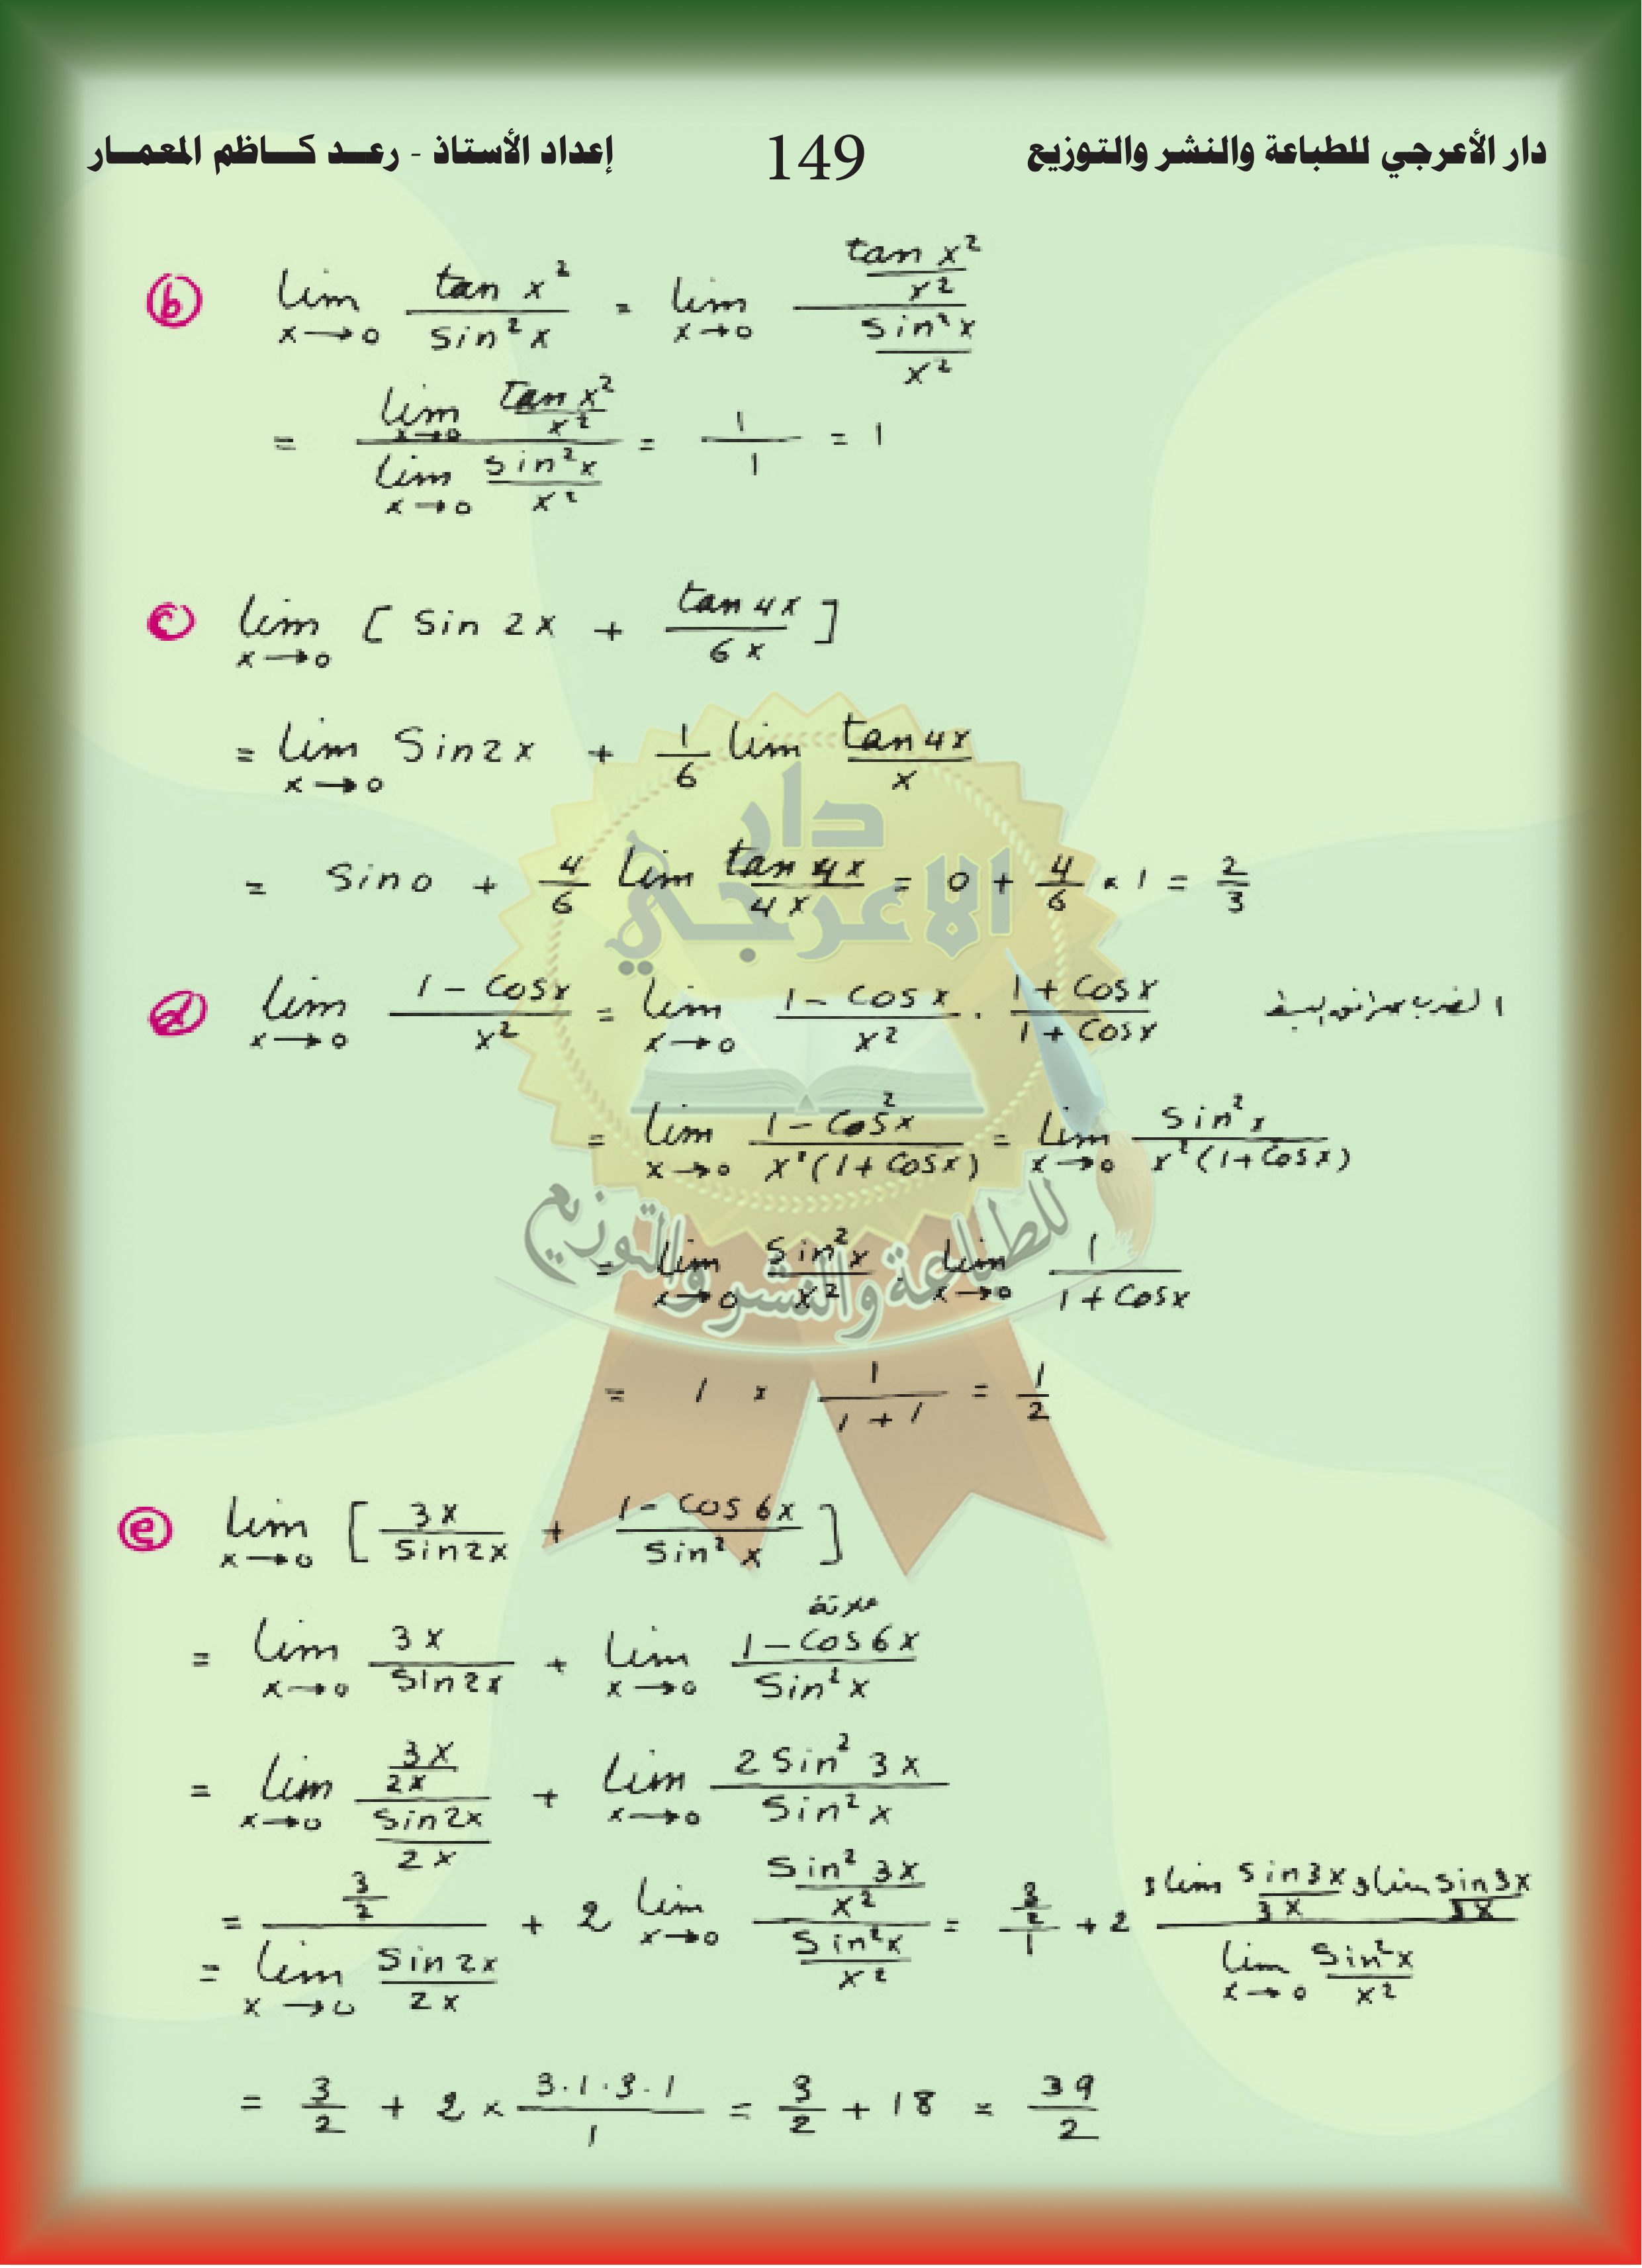 دار الأعرجي للطباعة والنشر والتوزيع 149 إعداد الأستاذ - رعد كاظم المعمار
ⓑ lim x→0 tan x² / sin² x = lim x→0 (tan x² / x²) / (sin² x / x²)
= (lim x→0 tan x² / x²) / (lim x→0 sin² x / x²) = 1/1 = 1
ⓒ lim x→0 [ sin 2x + tan 4x / 6x ]
= lim x→0 Sin 2x + 1/6 lim tan 4x / x
= sin 0 + 4/6 lim tan 4x / 4x = 0 + 4/6 × 1 = 2/3
ⓓ lim x→0 (1 - Cosx) / x² = lim x→0 (1 - Cos x) / x² · (1 + Cosx) / (1 + Cosx) الضرب
= lim x→0 (1 - Cos²x) / x²(1 + Cosx) = lim x→0 sin²x / x²(1 + Cosx)
= lim x→0 sin²x / x² · lim x→0 1 / (1 + Cosx)
= 1 × 1 / (1 + 1) = 1/2
ⓔ lim x→0 [ 3x / sin2x + (1 - Cos 6x) / Sin² x ]
= lim x→0 3x / Sin2x + lim x→0 (1 - Cos 6x) / Sin² x
= lim x→0 (3x / 2x) / (Sin2x / 2x) + lim x→0 2 Sin² 3x / Sin² x
= (3/2) / (= lim x→0 Sin 2x / 2x) + 2 lim x→0 (Sin² 3x / x²) / (Sin²x / x²) = (3/2) / 1 + 2 (3 lim Sin3x / 3x 3 lim Sin 3x / 3x) / (lim x→0 Sin²x / x²)
= 3/2 + 2 × (3·1·3·1) / 1 = 3/2 + 18 = 39/2
دار
الاعرجي
للطباعة والنشر والتوزيع